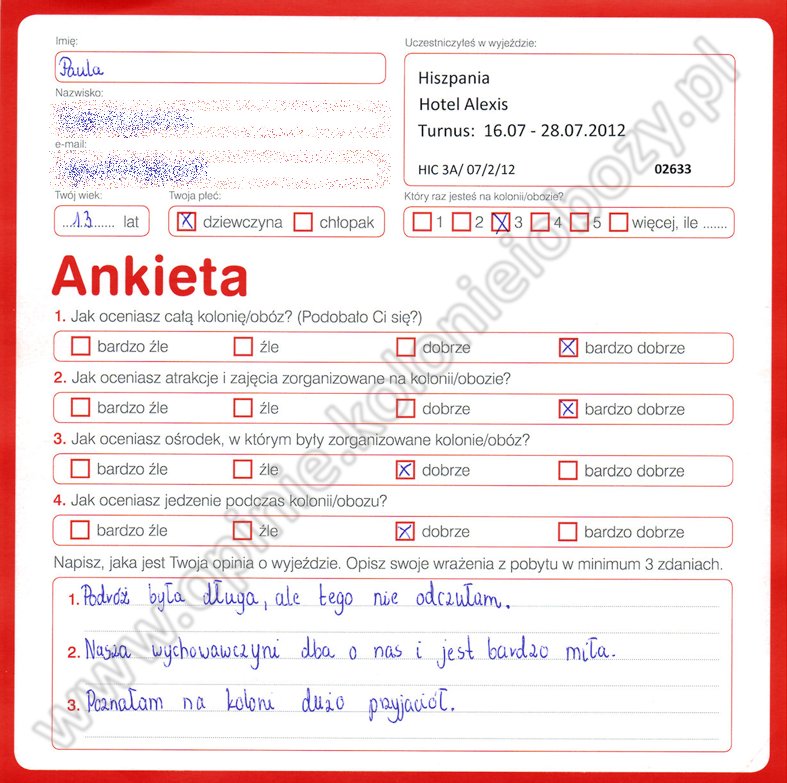 Imię:
Paula
Uczestniczyłeś w wyjeździe:
Hiszpania
Hotel Alexis
Turnus: 16.07 - 28.07.2012
HIC 3A/ 07/2/12 02633
Nazwisko:
e-mail:
Twój wiek: Twoja płeć: Który raz jesteś na kolonii/obozie?
...13...... lat X dziewczyna chłopak 1 2 X 3 4 5 więcej, ile .......
Ankieta
1. Jak oceniasz całą kolonię/obóz? (Podobało Ci się?)
bardzo źle źle dobrze X bardzo dobrze
2. Jak oceniasz atrakcje i zajęcia zorganizowane na kolonii/obozie?
bardzo źle źle dobrze X bardzo dobrze
3. Jak oceniasz ośrodek, w którym były zorganizowane kolonie/obóz?
bardzo źle źle X dobrze bardzo dobrze
4. Jak oceniasz jedzenie podczas kolonii/obozu?
bardzo źle źle X dobrze bardzo dobrze
Napisz, jaka jest Twoja opinia o wyjeździe. Opisz swoje wrażenia z pobytu w minimum 3 zdaniach.
1. Podróż była długa, ale tego nie odczułam.
2. Nasza wychowawczyni dba o nas i jest bardzo miła.
3. Poznałam na koloni dużo przyjaciół.
www.opinie.kolonieiobozy.pl